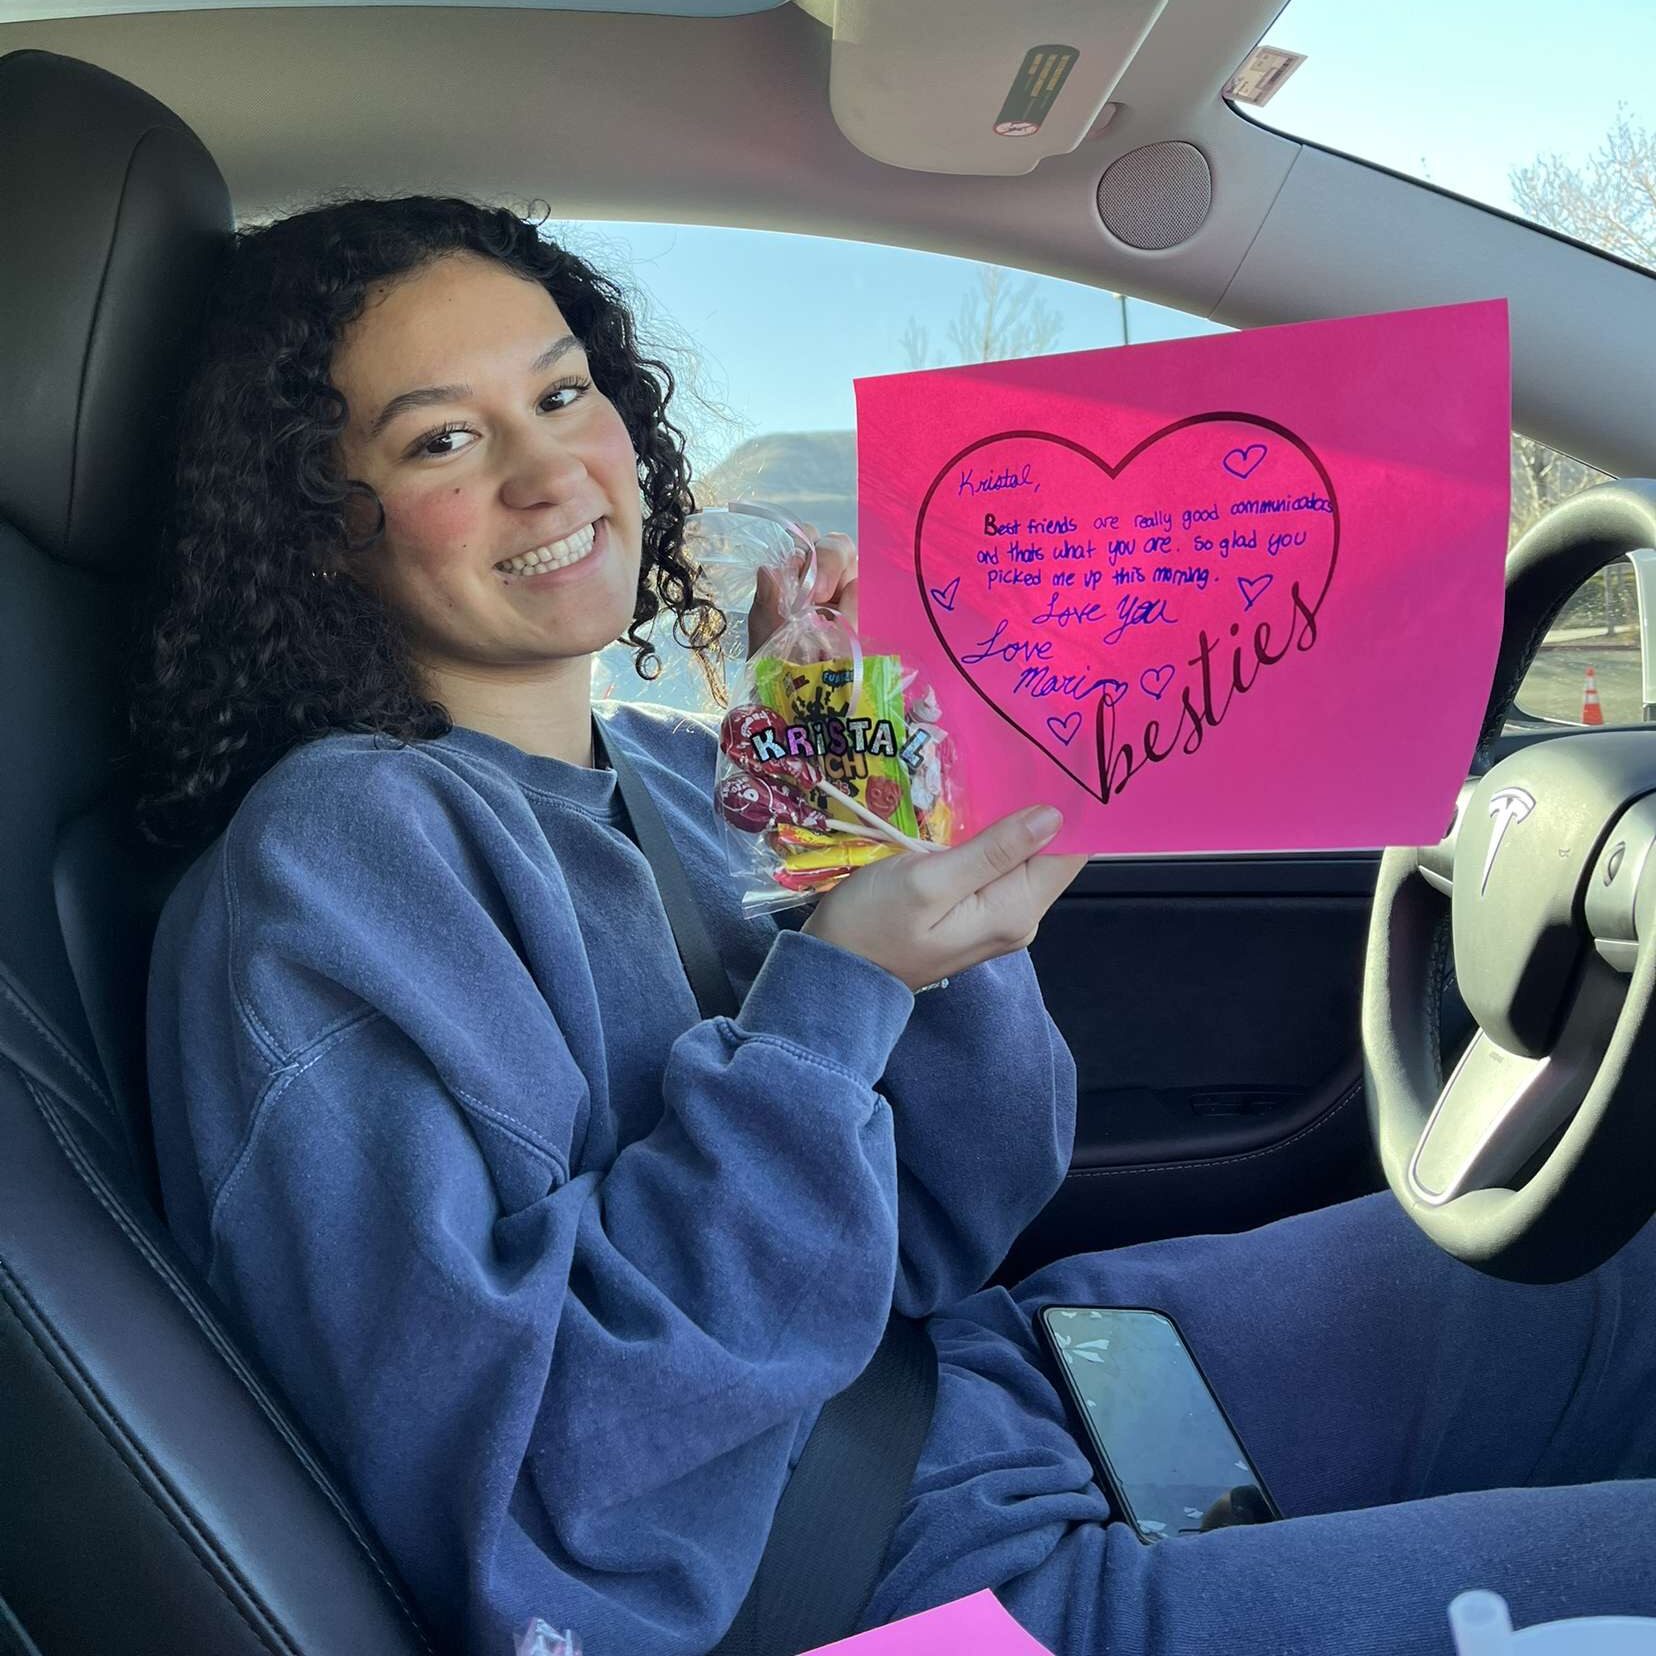 Kristal,
Best friends are really good communicators
and thats what you are. So glad you
picked me up this morning.
Love You
Love
Mari
besties
KRiSTAL